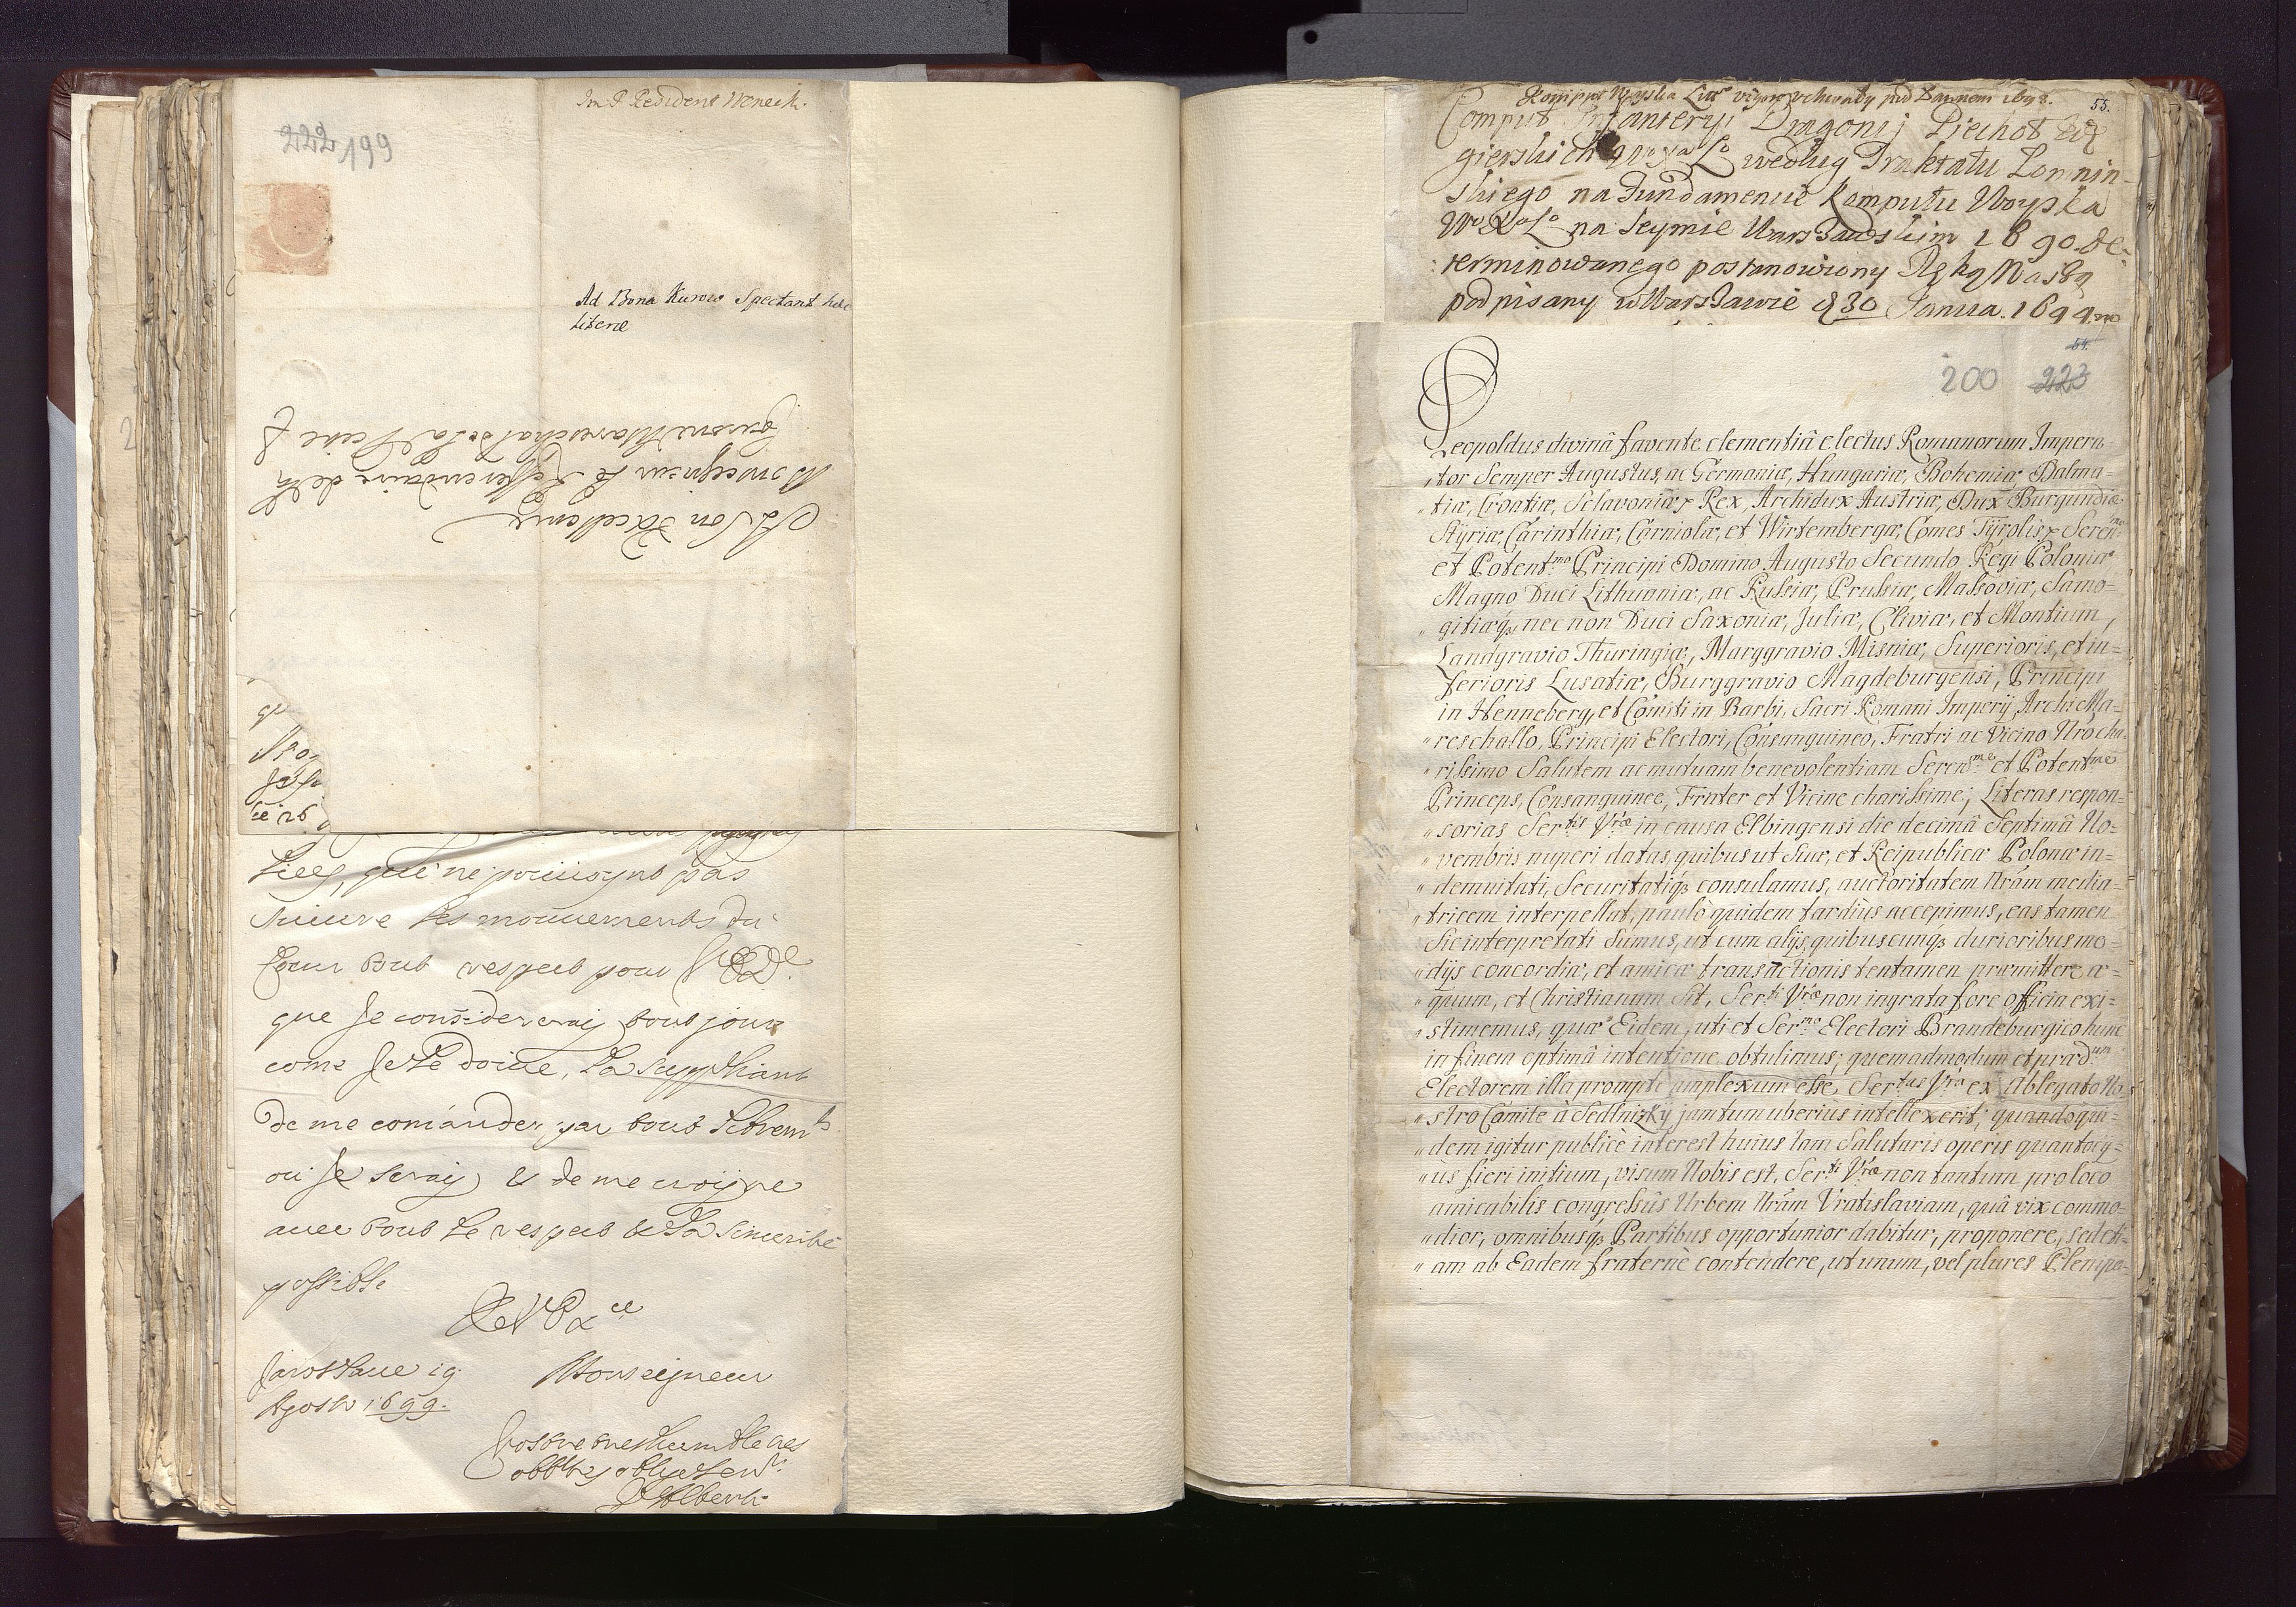 Residens
222 199
Ad Bona Kurow Spectant hae
Literae
A Son Excellence
Monseigneur le Refferendaire de la
Couronne Mareschal de la
que ne pouuoynt pas
suiure les mouuements du
coeur tout respect pour
que Je considereray tout jour
come Je le doiue, la suppliant
de me comander par tout
ou Je seray & de me croyre
auec tout le respect & la sincerité
possible
Jaroslaue 19 Monseigneur
Agosto 1699.
Vostre treshumble et
55.
Comput Infanteryi Dragonij Piechot Wę
gierskich według Traktatu Łomnin-
skiego na Fundamencie Komputu Woyska
na Seymie Warszawskim 1690 de-
terminowanego postanowiony Ręką Naszą
podpisany w Warszawie d 30 Janua. 1699
54.
200 223
Leopoldus divinâ favente clementiâ electus Romanorum Impera-
tor Semper Augustus, ac Germaniæ, Hungariæ, Bohemiæ, Dalma-
tiæ, Croatiæ, Sclavoniæ Rex, Archidux Austriæ, Dux Burgundiæ
Styriæ, Carinthiæ, Carniolæ, et Wirtembergæ, Comes Tyrolis Seren^mo
et Potent^mo Principi Domino Augusto Secundo Regi Poloniæ
Magno Duci Lithuaniæ, ac Russiæ, Prussiæ, Massoviæ, Samo=
gitiæq, nec non Duci Saxoniæ, Juliæ, Cliviæ, et Montium,
Landgravio Thuringiæ, Marggravio Misniæ, Superioris, et in=
ferioris Lusatiæ, Burggravio Magdeburgensi, Principi
in Henneberg, et Comiti in Barbi, Sacri Romani Imperij ArchiMa=
reschallo, Principi Electori, Consanguineo, Fratri ac Vicino Nr̃o cha
rissimo Salutem ac mutuam benevolentiam Seren^me et Potent^me
Princeps, Consanguinee, Frater et Vicine charissime; Literas respon=
sorias Ser^tis Vr̃æ in causa Elbingensi die decimâ Septimâ No=
vembris nuperi datas, quibus ut Suæ, et Reipublicæ Polonæ in=
demnitati, Securitatiq, consulamus, auctoritatem Nr̃am media=
tricem interpellat, paulò quidem tardiùs accepimus, eas tamen
Sic interpretati Sumus, ut cum alijs, quibuscunq, durioribus mo=
dijs concordiæ, et amicæ transactionis tentamen præmittere æ=
quum, et Christianum Sit, Ser^ti Vr̃æ non ingrata fore officia exi=
stimemus, quæ Eidem, uti et Ser^mo Electori Brandeburgico hunc
in finem optimâ intentione obtulimus; quemadmodum et præd^um
Electorem illa promptè amplexum esse, Ser^tas Vr̃a ex Ablegato No
stro Comite à Sedlnizky jam tum uberiùs intellexerit; quandoqui=
dem igitur publicè interest huius tam Salutaris operis quantocy=
us fieri initium, visum Nobis est, Ser^ti Vr̃æ non tantum pro loco
amicabilis congressûs Urbem Nr̃am Vratislaviam, quâ vix commo=
dior, omnibusq, Partibus opportunior dabitur, proponere, sed eti=
am ab Eadem fraternè contendere, ut unum, vel plures Plenipo=